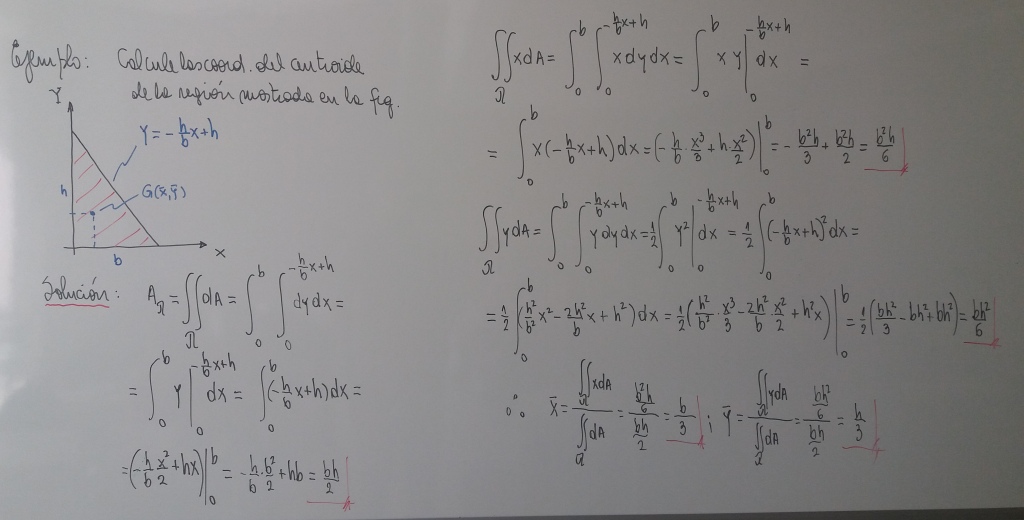 Ejemplo: Calcule las coord. del centroide
de la región mostrada en la fig.
Y
Y = -h/b x + h
h
G(x̄,ȳ)
b
X
Solución: A_R = ∬_R dA = ∫_0^b ∫_0^{-h/b x+h} dy dx =
= ∫_0^b Y |_0^{-h/b x+h} dx = ∫_0^b (-h/b x + h) dx =
= (-h/b x²/2 + hx) |_0^b = -h/b · b²/2 + hb = bh/2
∬_R x dA = ∫_0^b ∫_0^{-h/b x+h} x dy dx = ∫_0^b x y |_0^{-h/b x+h} dx =
= ∫_0^b x(-h/b x + h) dx = (-h/b · x³/3 + h · x²/2) |_0^b = -b²h/3 + b²h/2 = b²h/6
∬_R y dA = ∫_0^b ∫_0^{-h/b x+h} y dy dx = 1/2 ∫_0^b y² |_0^{-h/b x+h} dx = 1/2 ∫_0^b (-h/b x + h)² dx =
= 1/2 ∫_0^b (h²/b² x² - 2h²/b x + h²) dx = 1/2 (h²/b² · x³/3 - 2h²/b · x²/2 + h²x) |_0^b = 1/2 (bh²/3 - bh² + bh²) = bh²/6
∴ x̄ = ∬_R x dA / ∬_R dA = (b²h/6) / (bh/2) = b/3 ; ȳ = ∬_R y dA / ∬_R dA = (bh²/6) / (bh/2) = h/3